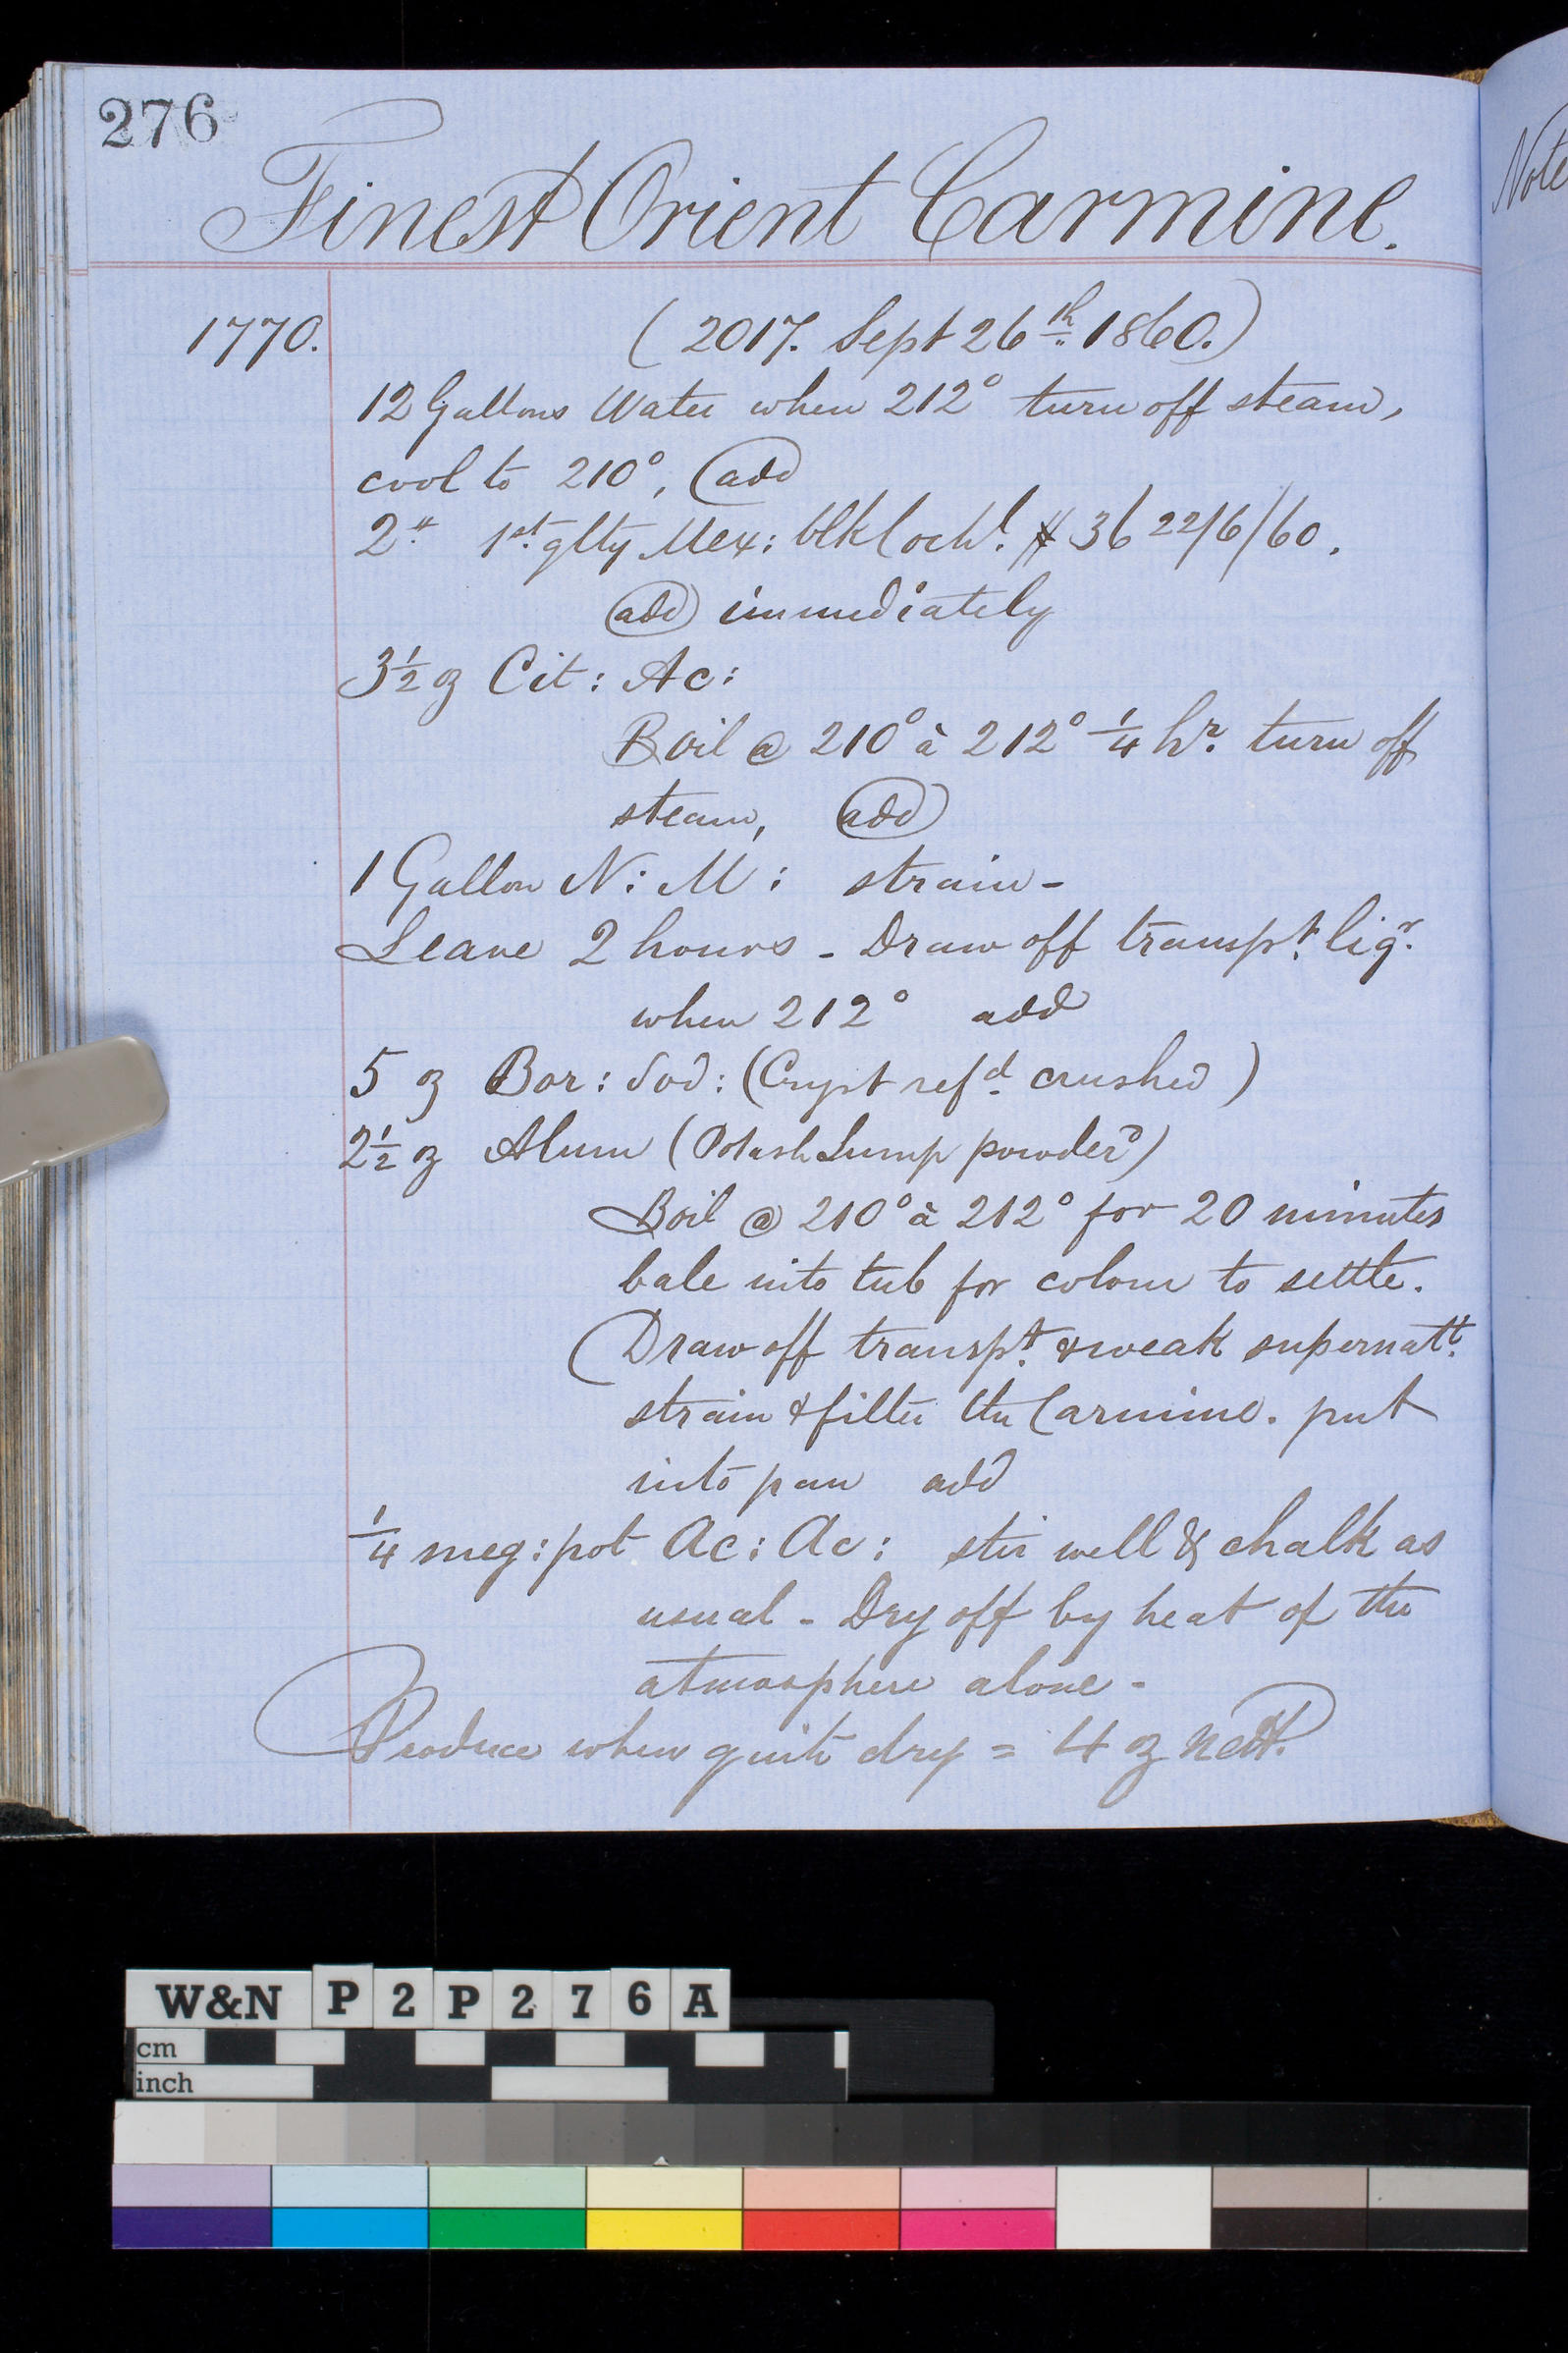 276
Finest Orient Carmine.
Note
1770. (2017. Sept 26th 1860.)
12 Gallons Water when 212° turn off steam,
cool to 210°, add
2 1st qlty Mex: blk Cochl. # 36 22/6/60.
add immediately
3½ oz Cit: Ac:
Boil @ 210° à 212° ¼ hr. turn off
steam, add
1 Gallon N: M: strain -
Leave 2 hours - Draw off transpt. liqr.
when 212° add
5 oz Bor: Sod: (Cryst refd. crushed)
2½ oz Alum (Potash Lump powder'd)
Boil @ 210° à 212° for 20 minutes
bale into tub for colour to settle.
Draw off transpt. & weak supernatt.
strain & filter the Carmine. put
into pan add
¼ meg: pot Ac: Ac: stir well & chalk as
usual - Dry off by heat of the
atmosphere alone -
Produce when quite dry = 4 oz nett.
W&N P2P276A
cm
inch